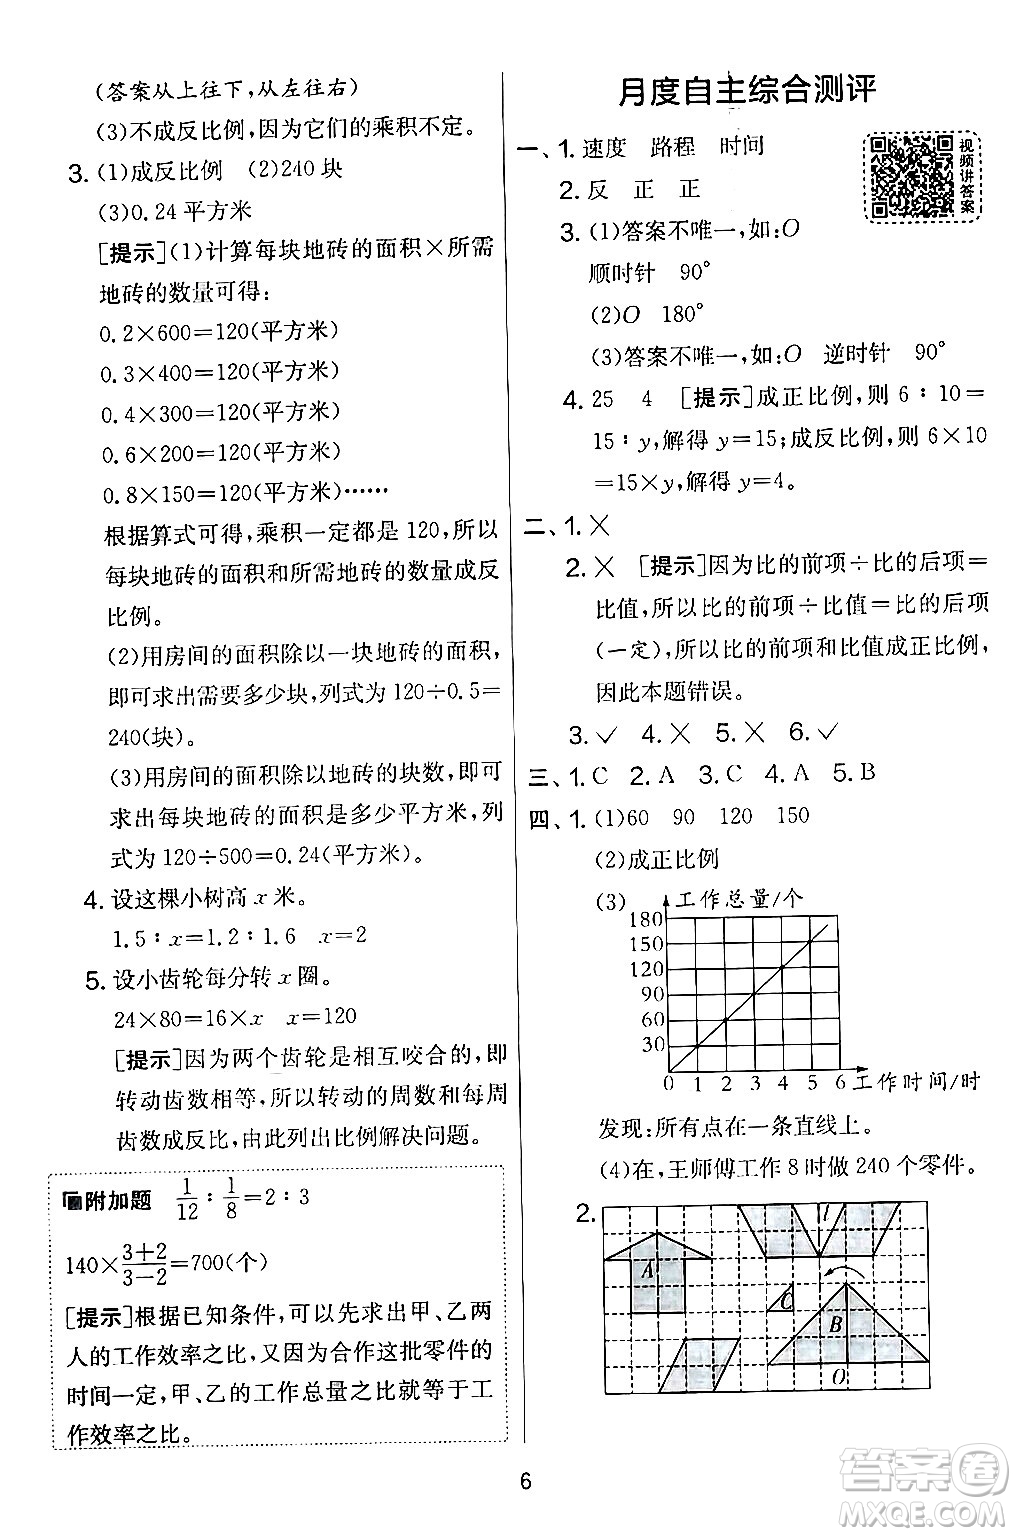 (答案从上往下,从左往右)
(3)不成反比例,因为它们的乘积不定。
3. (1)成反比例 (2)240块
(3)0.24平方米
[提示](1)计算每块地砖的面积×所需
地砖的数量可得:
0.2×600=120(平方米)
0.3×400=120(平方米)
0.4×300=120(平方米)
0.6×200=120(平方米)
0.8×150=120(平方米)……
根据算式可得,乘积一定都是120,所以
每块地砖的面积和所需地砖的数量成反
比例。
(2)用房间的面积除以一块地砖的面积,
即可求出需要多少块,列式为120÷0.5=
240(块)。
(3)用房间的面积除以地砖的块数,即可
求出每块地砖的面积是多少平方米,列
式为120÷500=0.24(平方米)。
4. 设这棵小树高x米。
1.5∶x=1.2∶1.6 x=2
5. 设小齿轮每分转x圈。
24×80=16×x x=120
[提示]因为两个齿轮是相互咬合的,即
转动齿数相等,所以转动的周数和每周
齿数成反比,由此列出比例解决问题。
附加题 1/12∶1/8=2∶3
140×(3+2)/(3−2)=700(个)
[提示]根据已知条件,可以先求出甲、乙两
人的工作效率之比,又因为合作这批零件的
时间一定,甲、乙的工作总量之比就等于工
作效率之比。
月度自主综合测评
视频讲答案
一、1. 速度 路程 时间
2. 反 正 正
3. (1)答案不唯一,如:O
顺时针 90°
(2)O 180°
(3)答案不唯一,如:O 逆时针 90°
4. 25 4 [提示]成正比例,则6∶10=
15∶y,解得y=15;成反比例,则6×10
=15×y,解得y=4。
二、1. ×
2. × [提示]因为比的前项÷比的后项=
比值,所以比的前项÷比值=比的后项
(一定),所以比的前项和比值成正比例,
因此本题错误。
3. ✓ 4. × 5. × 6. ✓
三、1. C 2. A 3. C 4. A 5. B
四、1. (1)60 90 120 150
(2)成正比例
(3)
工作总量/个
180
150
120
90
60
30
0 1 2 3 4 5 6 工作时间/时
发现:所有点在一条直线上。
(4)在,王师傅工作8时做240个零件。
2.
l
A
C
B
O
6
答案圈
MXQE.COM